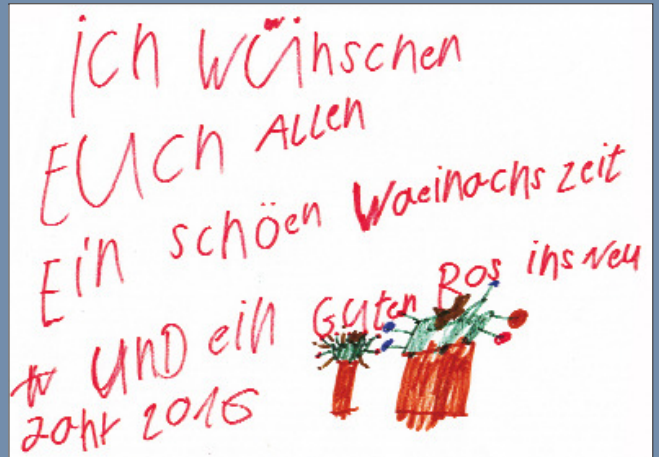 ich wünschen
EUCH ALLEN
Ein schöen Waeinachszeit
UND ein Guten Ros ins Neu
Jahr 2016